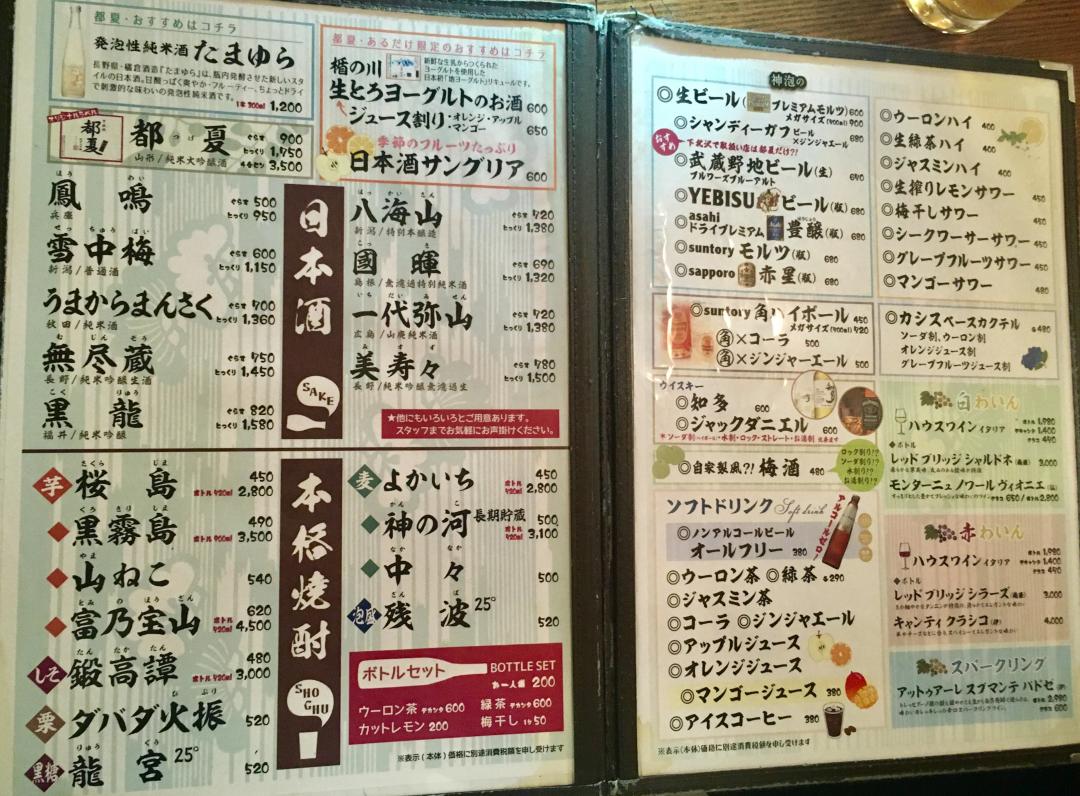 都夏・おすすめはコチラ
発泡性純米酒 たまゆら
長野県・橘倉酒造『たまゆら』は、瓶内発酵させた新しいスタ
イルの日本酒。甘酸っぱく爽やか・フルーティー、ちょっとドライ
で刺激的な味わいの発泡性純米酒です。
1本300ml 1,200
オリジナルラベル
都夏!
都夏
つげ
山形/純米大吟醸酒
ぐらす 900
とっくり 1,750
4合びん 3,500
都夏・あるだけ限定のおすすめはコチラ
楯の川
新鮮な生乳からつくられた
ヨーグルトを使用した
日本初「地ヨーグルト」リキュールです。
生とろヨーグルトのお酒 600
ジュース割り・オレンジ・アップル
・マンゴー 650
季節のフルーツたっぷり
日本酒サングリア 600
日本酒
SAKE
ほう めい
鳳鳴
兵庫
ぐらす 500
とっくり 950
せっ ちゅう ばい
雪中梅
新潟/普通酒
ぐらす 600
とっくり 1,150
うまからまんさく
秋田/純米酒
ぐらす 700
とっくり 1,360
む じん ぞう
無尽蔵
長野/純米吟醸生酒
ぐらす 750
とっくり 1,450
こく りゅう
黒龍
福井/純米吟醸
ぐらす 820
とっくり 1,580
はっ かい さん
八海山
新潟/特別本醸造
ぐらす 720
とっくり 1,380
こっ き
國暉
島根/無濾過特別純米酒
ぐらす 690
とっくり 1,320
いち だい み せん
一代弥山
広島/山廃純米酒
ぐらす 720
とっくり 1,380
み す ず
美寿々
長野/純米吟醸無濾過生
ぐらす 780
とっくり 1,500
★他にもいろいろとご用意あります。
スタッフまでお気軽にお声掛けください。
本格焼酎
SHOCHU
芋
さくら じま
桜島 450
ボトル 720ml 2,800
くろ きり しま
黒霧島 490
ボトル 900ml 3,500
やま
山ねこ 540
とみ の ほう ざん
富乃宝山 620
ボトル 720ml 4,500
しそ
たん たか たん
鍛高譚 480
ボトル 720ml 3,000
栗
ひ ぶり
ダバダ火振 520
黒糖
りゅう ぐう
龍宮 25° 520
麦
よかいち 450
ボトル 720ml 2,800
かん かわ
神の河 長期貯蔵 500
ボトル 720ml 3,100
なか なか
中々 500
泡盛
ざん ぱ
残波 25° 520
ボトルセット BOTTLE SET
お一人様 200
ウーロン茶 デカンタ 600 緑茶 デカンタ 600
カットレモン 200 梅干し 1コ 50
※表示(本体)価格に別途消費税額を申し受けます
神泡の
◎生ビール(プレミアムモルツ) 600
メガサイズ(900ml) 900
◎シャンディーガフ ビール×ジンジャエール 680
おすすめ
下北沢で取扱い店は都夏だけ?!
◎武蔵野地ビール(生) 640
ブルワーズブルーアルト
◎YEBISUビール(瓶) 680
◎asahi
ドライプレミアム 豊醸(瓶) 680
ほうじょう
◎suntory モルツ(瓶) 680
◎sapporo 赤星(瓶) 680
◎suntory 角ハイボール 450
メガサイズ(900ml) 720
◎角×コーラ 500
◎角×ジンジャーエール 500
ウイスキー
◎知多 600
◎ジャックダニエル 600
*ソーダ割(ハイボール)・水割・ロック・ストレート・お湯割 出来ます
◎自家製風?! 梅酒 480
ロック割り!?
ソーダ割り!?
水割り!?
お湯割り!?
ソフトドリンク Soft drink
◎ノンアルコールビール
オールフリー 380
アルコールゼロ
◎ウーロン茶 ◎緑茶 各290
◎ジャスミン茶
◎コーラ ◎ジンジャエール
◎アップルジュース
◎オレンジジュース
◎マンゴージュース 380
◎アイスコーヒー 380
※表示(本体)価格に別途消費税額を申し受けます
◎ウーロンハイ 400
◎生緑茶ハイ 400
◎ジャスミンハイ 400
◎生搾りレモンサワー 450
◎梅干しサワー 450
◎シークワーサーサワー 450
◎グレープフルーツサワー 450
◎マンゴーサワー 480
◎カシスベースカクテル 各480
ソーダ割、ウーロン割
オレンジジュース割
グレープフルーツジュース割
白わいん
◎ハウスワイン イタリア
ボトル 1,980
デキャンタ 1,400
グラス 490
◆ボトル
レッド ブリッジ シャルドネ 3,000
モンターニュ ノワール ヴィオニエ
グラス 650/ボトル 2,800
赤わいん
◎ハウスワイン イタリア
ボトル 1,980
デキャンタ 1,400
グラス 490
◆ボトル
レッド ブリッジ シラーズ 3,000
キャンティ クラシコ 4,000
スパークリング
アットゥアーレ スプマンテ パドゼ
ボトル 2,980
グラス 600